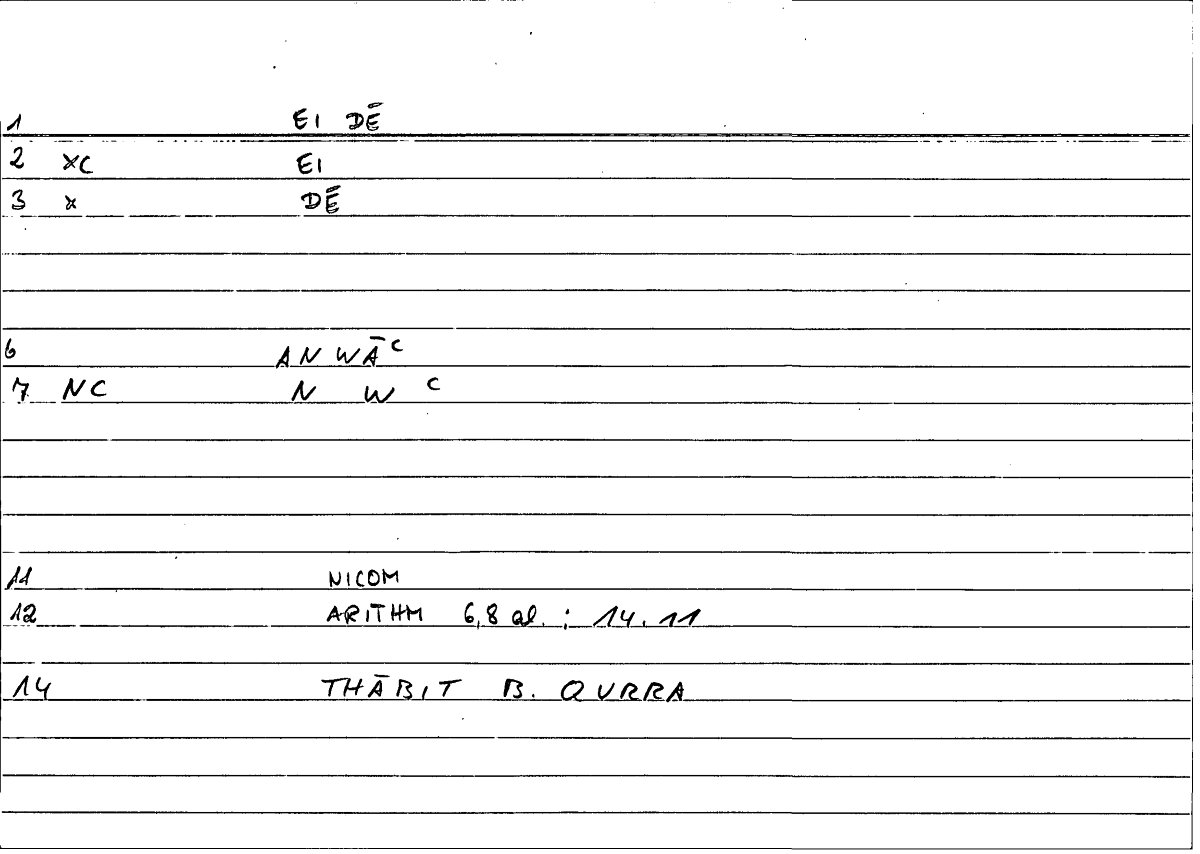 1 EI DĒ
2 xC EI
3 x DĒ
6 ANWĀᶜ
7 NC N W ᶜ
11 NICOM
12 ARITHM 6,8 al. ; 14.11
14 THĀBIT B. QURRA